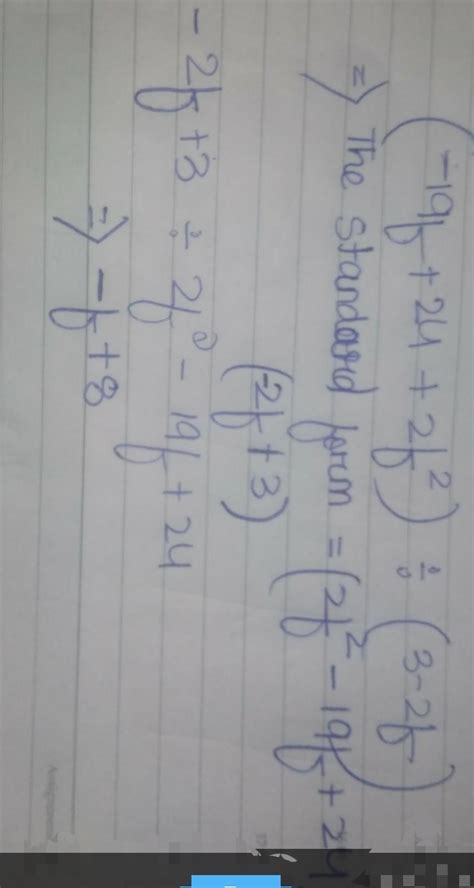 (-19f + 24 + 2f²) ÷ (3-2f)
=> The standard form = (2f² - 19f + 24
(-2f + 3)
- 2f + 3 ÷ 2f² - 19f + 24
=> -f + 8